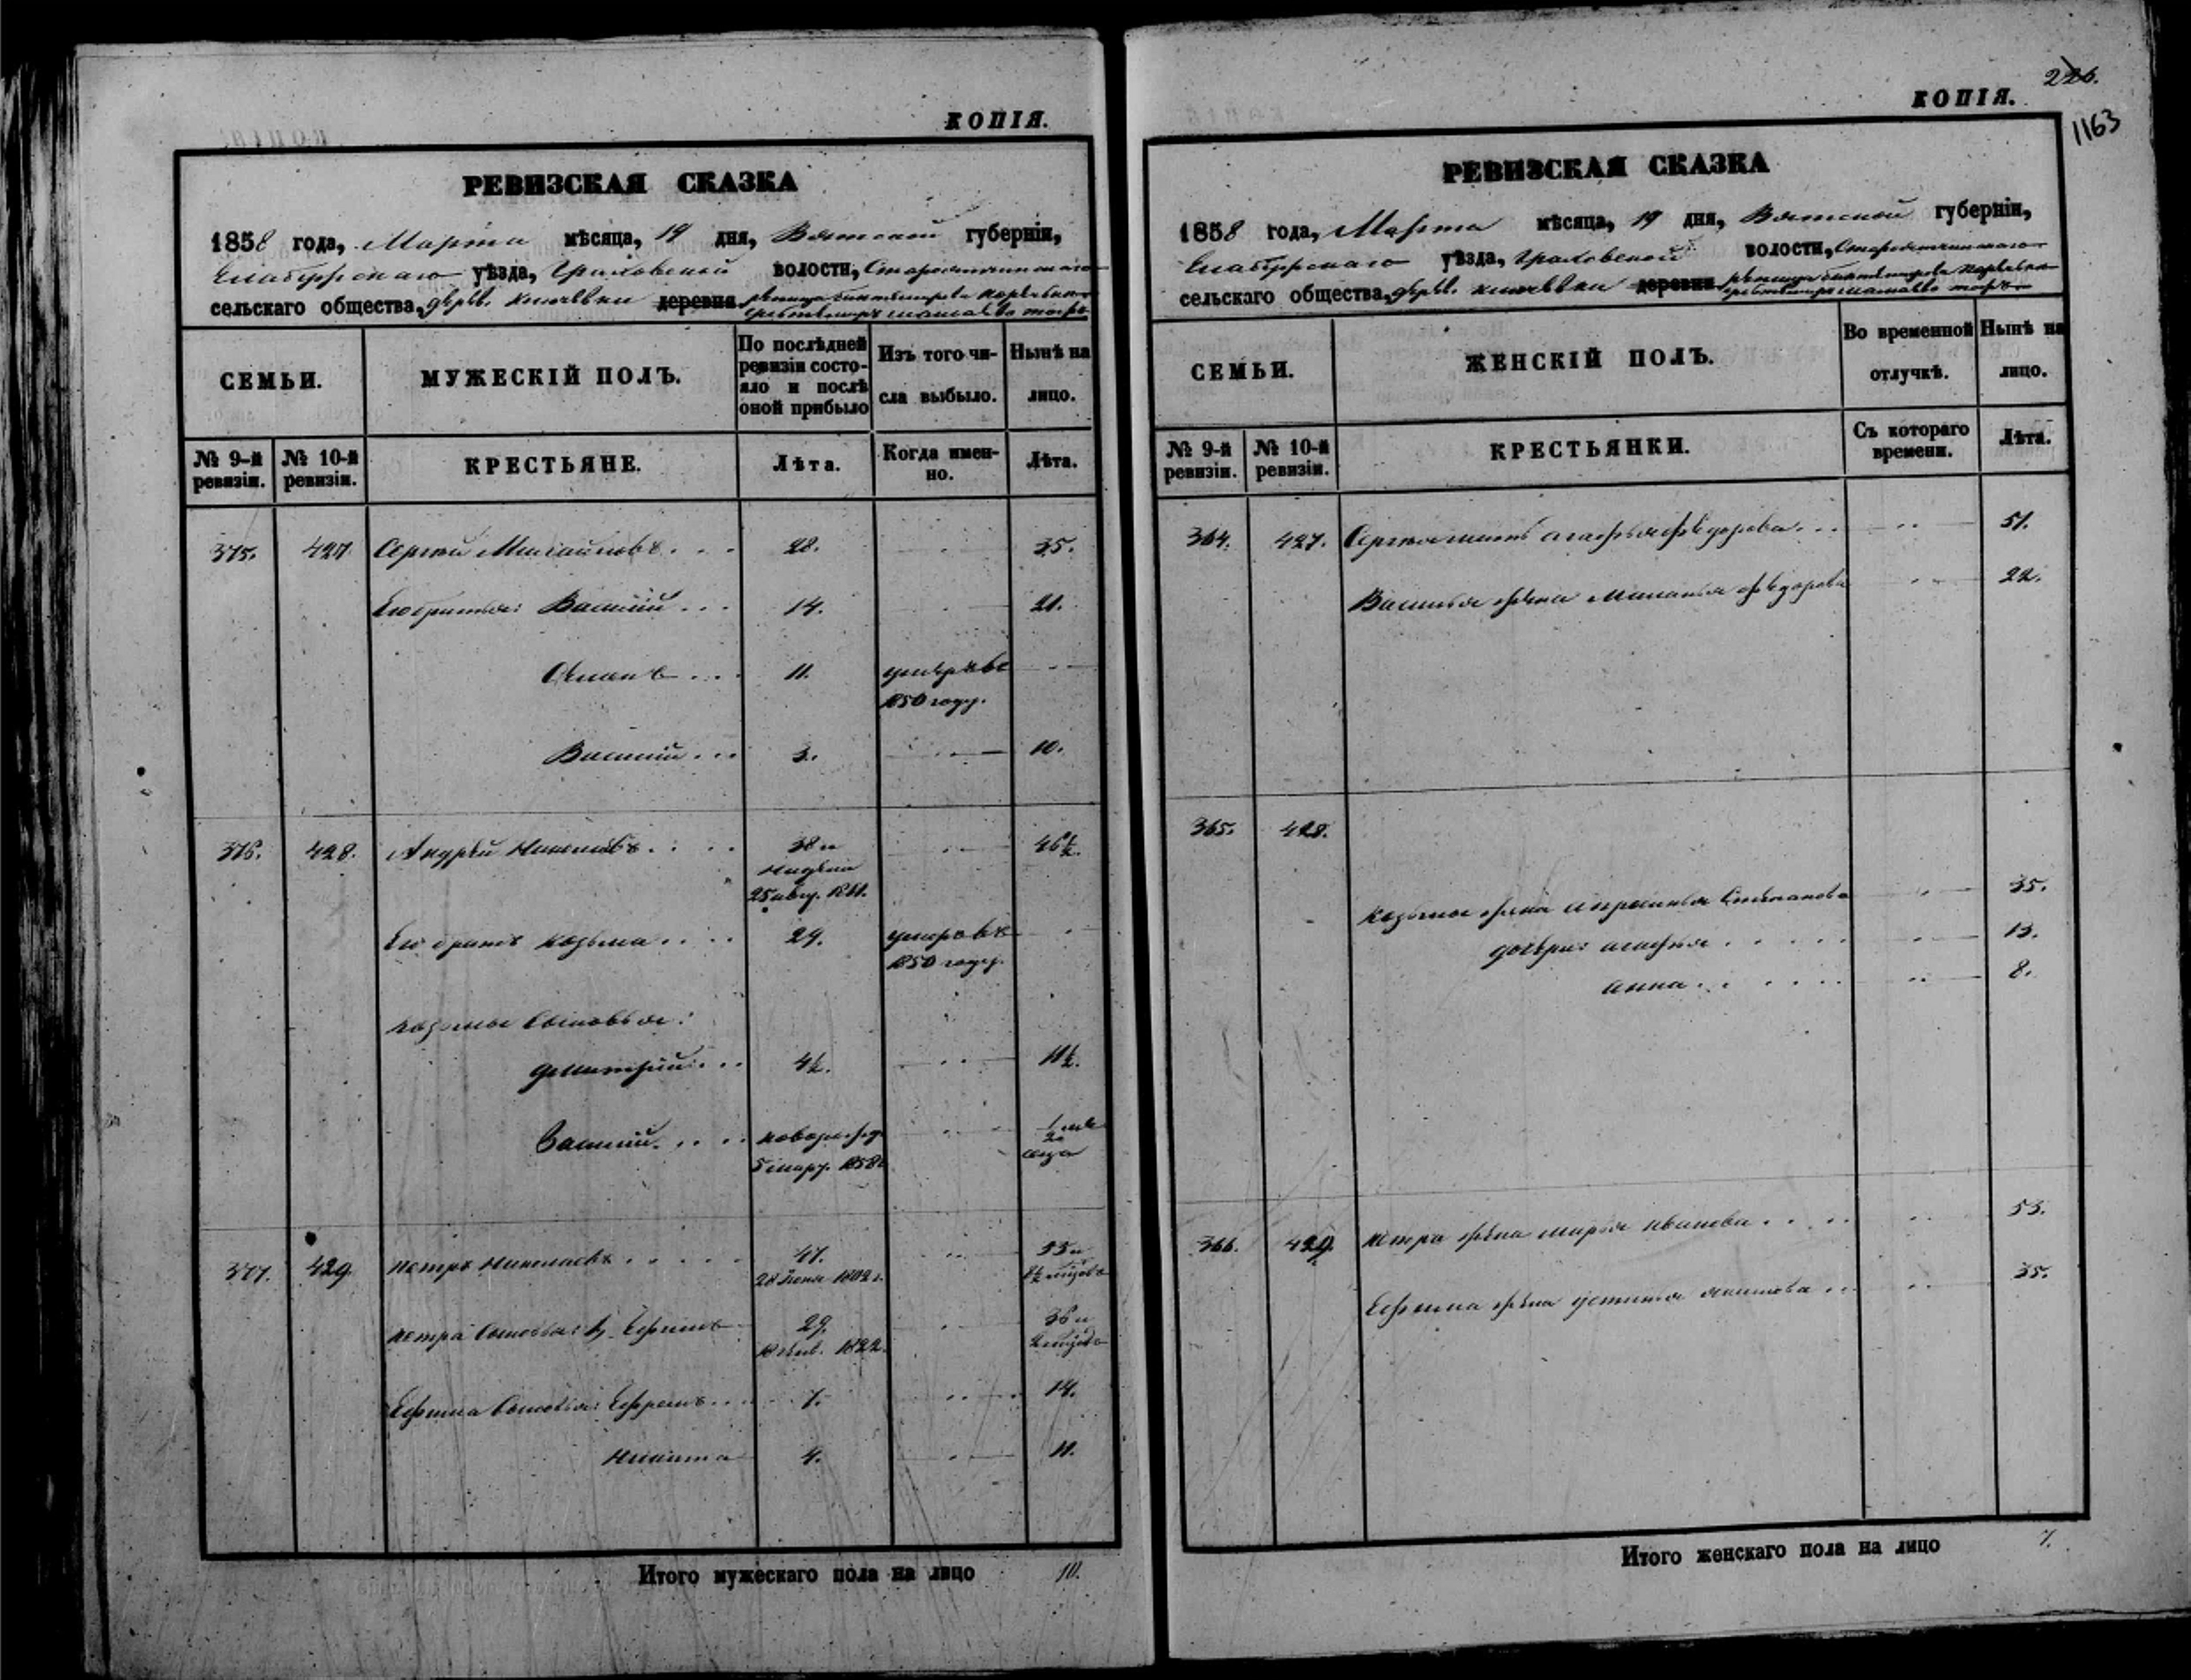 КОПІЯ.
РЕВИЗСКАЯ СКАЗКА
1858 года, Марта мѣсяца, 19 дня, Вятской губерніи,
Елабугскаго уѣзда, Граховской волости,
сельскаго общества, дерев. деревня
СЕМЬИ.
МУЖЕСКІЙ ПОЛЪ.
По послѣдней ревизіи состояло и послѣ оной прибыло
Изъ того числа выбыло.
Нынѣ на лицо.
№ 9-й ревизіи.
№ 10-й ревизіи.
КРЕСТЬЯНЕ.
Лѣта.
Когда именно.
Лѣта.
375. 427. Сергей Михайловъ . . . 28. 35.
Его братья: Василій . . . 14. 21.
11. умеръ въ
1850 году.
Василій . . . 3. 10.
376. 428. Андрей Николаевъ . . . . 38 и 46½.
недели
25 авгу. 1811.
Его братъ Козьма . . . . 29. умеръ въ
1850 году.
Козьмы сыновья:
Дмитрій . . . 4½. 11½.
Василій . . . . новорожд.
5 март. 1858
377. 429. Петръ Николаевъ . . . . . 47. 55 и
28 1802 г.
Петра сыновья: 1, Ефимъ 29. 36 и
18 1822. 2
Ефима сыновья: Ефремъ . . . 7. 14.
Никита 4. 11.
Итого мужескаго пола на лицо 10.
226.
КОПІЯ.
1163
РЕВИЗСКАЯ СКАЗКА
1858 года, Марта мѣсяца, 19 дня, Вятской губерніи,
Елабугскаго уѣзда, Граховской волости,
сельскаго общества, дерев. деревня
СЕМЬИ.
ЖЕНСКІЙ ПОЛЪ.
Во временной отлучкѣ.
Нынѣ на лицо.
№ 9-й ревизіи.
№ 10-й ревизіи.
КРЕСТЬЯНКИ.
Съ котораго времени.
Лѣта.
364. 427. Сергея мать Агафья Федорова . . . 51.
Василья жена Маланья Федорова 22.
365. 428.
Козьмы жена Апросинья Степанова 35.
дочери: Агафья . . . . . 13.
Анна . . . . . 8.
366. 429. Петра жена Марья Иванова . . . . 53.
Ефима жена Устинья Акимова . . 35.
Итого женскаго пола на лицо 7.